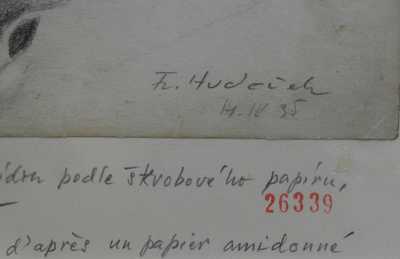 Fr. Hudeček
14. IV 35
podle škrobového papíru,
26339
d'après un papier amidonné